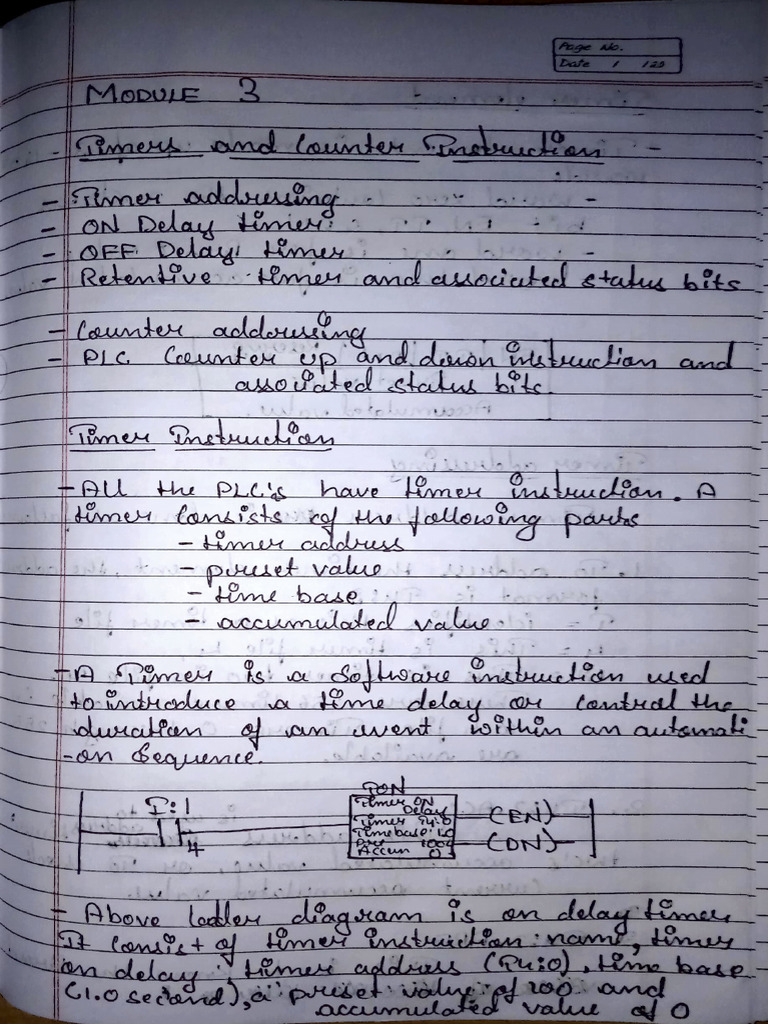 Page No.
Date / /20
MODULE 3
Timers and Counter Instruction
- Timer addressing
- ON Delay timer
- OFF Delay timer
- Retentive timer and associated status bits
- Counter addressing
- PLC Counter up and down instruction and
associated status bits.
Timer Instruction
- All the PLC's have timer instruction. A
timer consists of the following parts
- timer address
- preset value
- time base
- accumulated value
- A Timer is a software instruction used
to introduce a time delay or control the
duration of an event within an automati
-on sequence.
TON
I:1
4
Timer ON
Delay
Timer T4:0
Timebase 1.0
Pre 100
Accum 0
(EN)
(DN)
- Above ladder diagram is on delay timer
It consist of timer instruction name, timer
on delay timer address (T4:0), time base
(1.0 second), a preset value of 100 and
accumulated value of 0